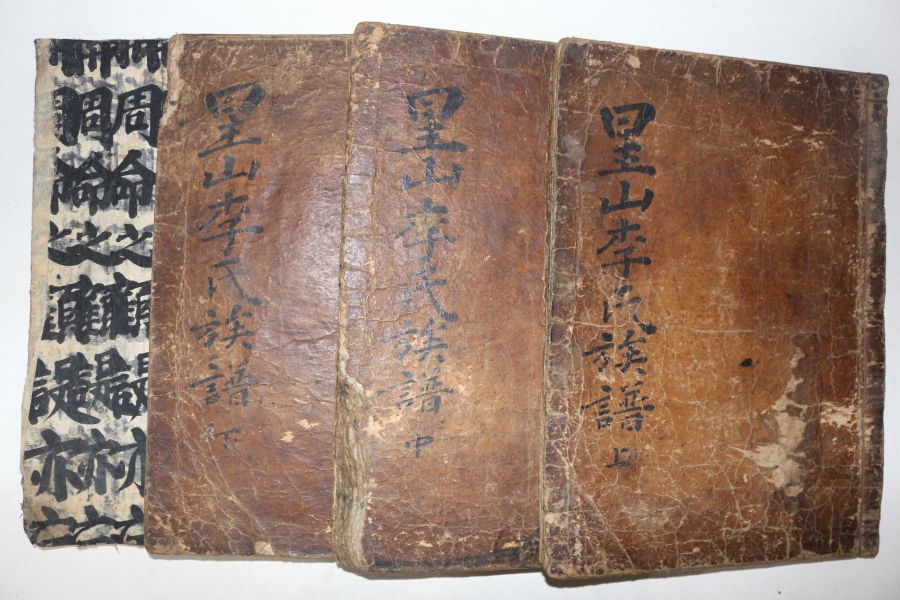 星山李氏族譜 上
星山李氏族譜 中
星山李氏族譜 下
周命之顧諟亦